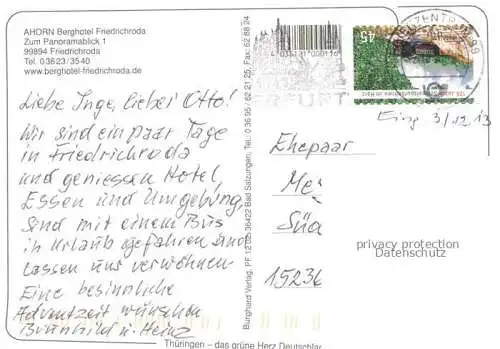 AHORN Berghotel Friedrichroda
Zum Panoramablick 1
99894 Friedrichroda
Tel. 03623/3540
www.berghotel-friedrichroda.de
Liebe Inge, lieber Otto!
Wir sind ein paar Tage
in Friedrichroda
und geniessen Hotel,
Essen und Umgebung,
sind mit einem Bus
in Urlaub gefahren und
lassen uns verwöhnen.
Eine besinnliche
Adventzeit wünschen
Brunhild u. Heinz
Burghard Verlag, PF 1205, 36422 Bad Salzungen, Tel.: 0 36 95 / 62 21 25, Fax: 62 88 24
45
ERFURT
Eing. 3/12.13
Ehepaar
Me
Süd
15236
privacy protection
Datenschutz
Thüringen – das grüne Herz Deutschlan